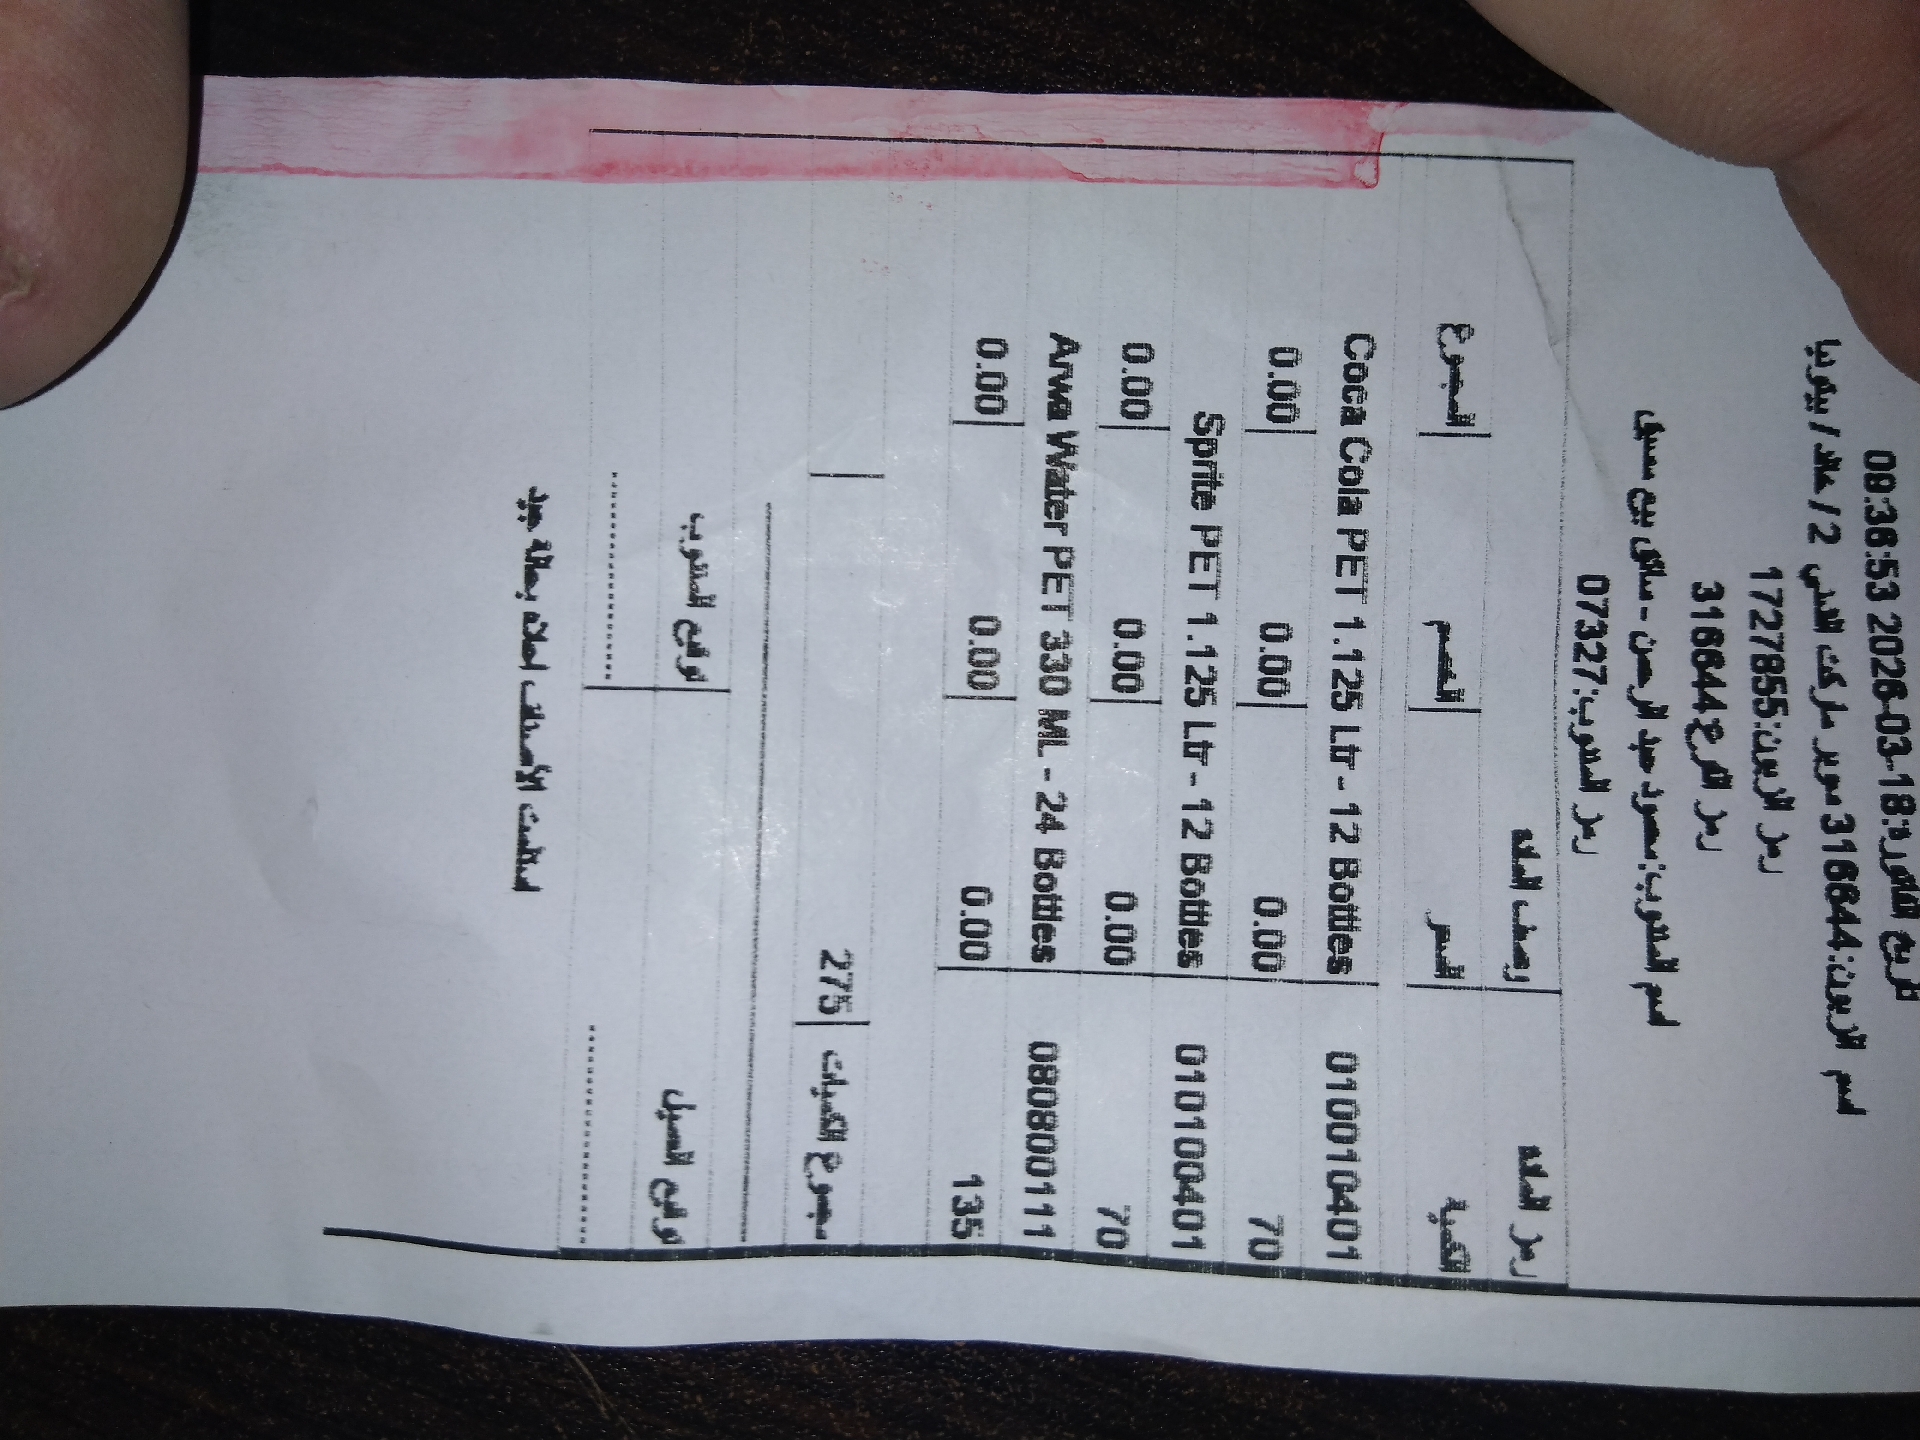 تاريخ الفاتورة:18-03-2026 08:36:53
اسم الزبون:316644 سوبر ماركت القدس 2 / خالد / بيتونيا
رمز الزبون:1727855
رمز الفرع 316644
اسم المندوب: عبد الرحمن - سائق بيع مسبق
رمز المندوب:07327
رمز المادة وصف المادة
الكمية السعر الخصم المجموع
010010401 Coca Cola PET 1.125 Ltr - 12 Bottles
70 0.00 0.00 0.00
010100401 Sprite PET 1.125 Ltr - 12 Bottles
70 0.00 0.00 0.00
080800111 Arwa Water PET 330 ML - 24 Bottles
135 0.00 0.00 0.00
مجموع الكميات 275
توقيع العميل توقيع المندوب
استلمت الأصناف اعلاه بحالة جيدة